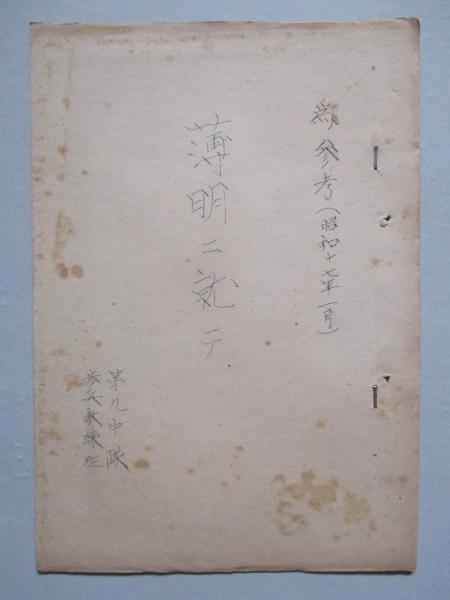 為參考(昭和十七年一月)
薄明ニ就テ
第九中隊
歩兵教練班